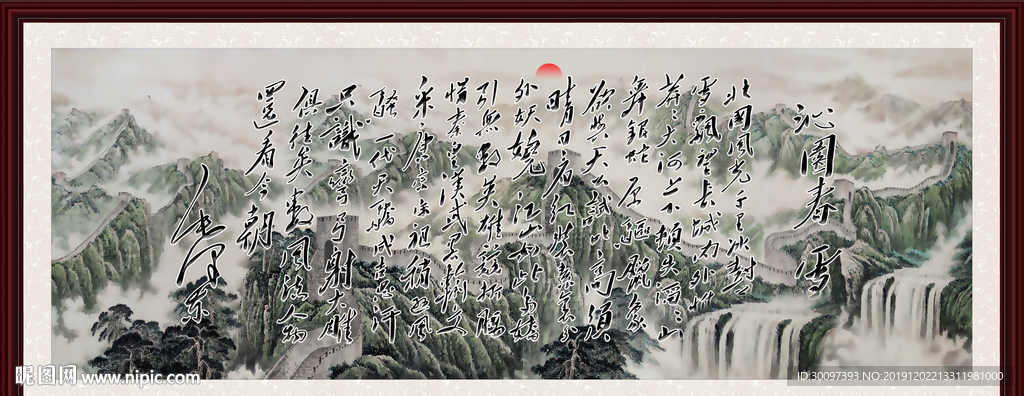 沁园春 雪
北国风光千里冰封
雪飘望长城内外惟
莽莽大河上下顿失滔滔山
舞银蛇原驰蜡象
欲与天公试比高须
晴日看红装素裹分
外妖娆江山如此多娇
引无数英雄竞折腰
惜秦皇汉武略输文
采唐宗宋祖稍逊风
骚一代天骄成吉思汗
只识弯弓射大雕
俱往矣数风流人物
还看今朝
毛泽东
昵图网 www.nipic.com
ID:30097393 NO:20191202213311981000